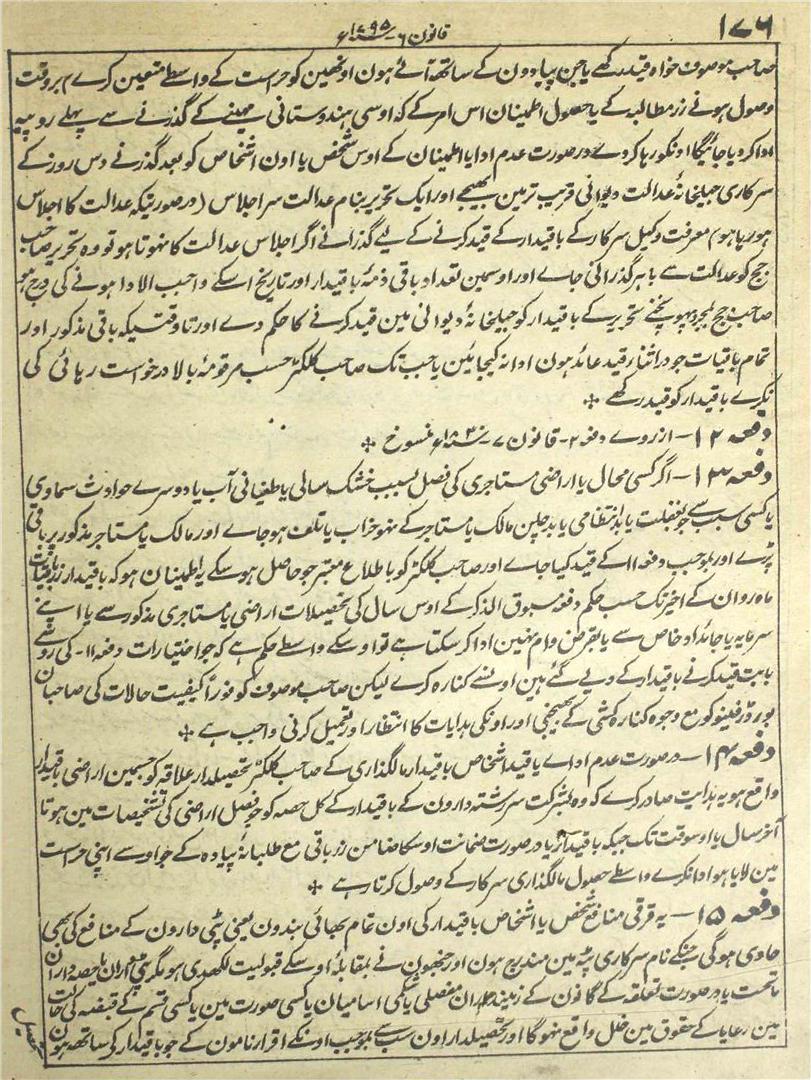 ۱۷۶
قانون ۶ - سنہ ۱۷۹۵ ء
صاحب موصوف خواہ قید رکھے یا جن پیادون کے ساتھ آئے ہون اونھین کو حراست کے واسطے متعین کرے) بروقت
وصول ہونے زر مطالبہ کے یا حصول اطمینان اس امر کے کہ اوسی ہندوستانی مہینے کے گذرنے سے پہلے روپیہ
ادا کر دیا جائیگا اونکو رہا کر دے درصورت عدم ادا یا اطمینان کے اوس شخص یا اون اشخاص کو بعد گذرنے دس روز کے
سرکاری جیلخانۂ عدالت دیوانی قریب ترمین بھیجے اور ایک تحریر بنام عدالت سر اجلاس (درصورتیکہ عدالت کا اجلاس
ہو رہا ہو) معرفت وکیل سرکار کے باقیدار کے قید کرنے کے لیئے گذرانے اگر اجلاس عدالت کا نہوتا ہو تو وہ تحریر صاحب
جج کو عدالت سے باہر گذرانی جاے اور اوسمین تعداد باقی ذمۂ باقیدار اور تاریخ اسکے واجب الادا ہونے کی درج ہو
صاحب جج بمجرد پہونچنے تحریر کے باقیدار کو جیلخانۂ دیوانی مین قید کرنے کا حکم دے اور تاوقتیکہ باقی مذکور اور
تمام باقیات جو دراثناء قید عائد ہون ادا نہ کیجائین یا جب تک صاحب کلکٹر حسب مرقومۂ بالا درخواست رہائی کی
نکرے باقیدار کو قید رکھے ÷
دفعہ ۱۲ - ازروے دفعہ ۲ - قانون ۷ - سنہ ۱۸۳۰ ء منسوخ ÷
دفعہ ۱۳ - اگر کسی محال یا اراضی مستاجری کی فصل بسبب خشک سالی یا طغیانی آب یا دوسرے حوادث سماوی
یا کسی سبب سے جو بغفلت یا بد انتظامی یا بد چلن مالک یا مستاجر کے نہو خراب یا تلف ہو جاے اور مالک یا مستاجر مذکور پر باقی
پڑے اور بموجب دفعہ ۱۱ کے قید کیا جاے اور صاحب کلکٹر کو باطلاع معتبر جو حاصل ہو سکے یہ اطمینان ہو کہ باقیدار زر باقیات
ماہ روان کے اخیر تک حسب حکم دفعہ مسبوق الذکر کے اوس سال کی تحصیلات اراضی یا مستاجری مذکور سے یا اپنے
سرمایہ یا جائداد خاص سے یا بقرض وام نہین ادا کر سکتا ہے تو اوسکے واسطے حکم ہے کہ جو اختیارات دفعہ ۱۱ - کی رو سے
بابت قید کرنے باقیدار کے دیے گئے ہین اونسے کنارہ کرے لیکن صاحب موصوف کو فوراً کیفیت حالات کی صاحبان
بورڈ رفینیو کو مع وجوہ کنارہ کشی کے بھیجنی اور اونکی ہدایات کا انتظار اور تعمیل کرنی واجب ہے ÷
دفعہ ۱۴ - درصورت عدم اداے یا قید اشخاص باقیدار مالگذاری کے صاحب کلکٹر تحصیلدار علاقہ کو جسمین اراضی باقیدار
واقع ہو یہ ہدایت صادر کرے کہ وہ بشرکت سرشتہ دارون کے باقیدار کے کل حصہ کو جو فصل اراضی کی تشخیصات مین ہوتا
آخر سال یا اوسوقت تک جبکہ باقیدار یا درصورت ضمانت اوسکا ضامن زر باقی مع طلبانۂ پیادہ کے جو اوسے اپنی حراست
مین لایا ہو ادا نکرے واسطے حصول مالگذاری سرکار کے وصول کرتا رہے ÷
دفعہ ۱۵ - یہ قرقی منافع شخص یا اشخاص باقیدار کی اون تمام بھائی بندون یعنی پٹی دارون کے منافع کی بھی
حاوی ہوگی جنکے نام سرکاری پٹہ مین مندرج ہون اور جنھون نے بمقابلہ اوسکے قبولیت لکھدی ہو مگر پٹی داران یا حصہ داران
ماتحت یا درصورت تعلقہ کے گانون کے زمینداران مفصلی یا شکمی اسامیان یا کسی صورت مین یا کسی قسم کے قبضہ کی حالت
مین رعایا کے حقوق مین خلل واقع نہوگا اور تحصیلدار اون سب سے بموجب اونکے اقرارنامون کے جو باقیدار کے ساتھ ہون